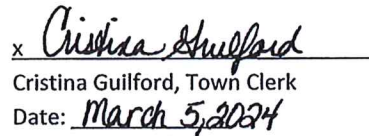 x Cristina Guilford
Cristina Guilford, Town Clerk
Date: March 5, 2024